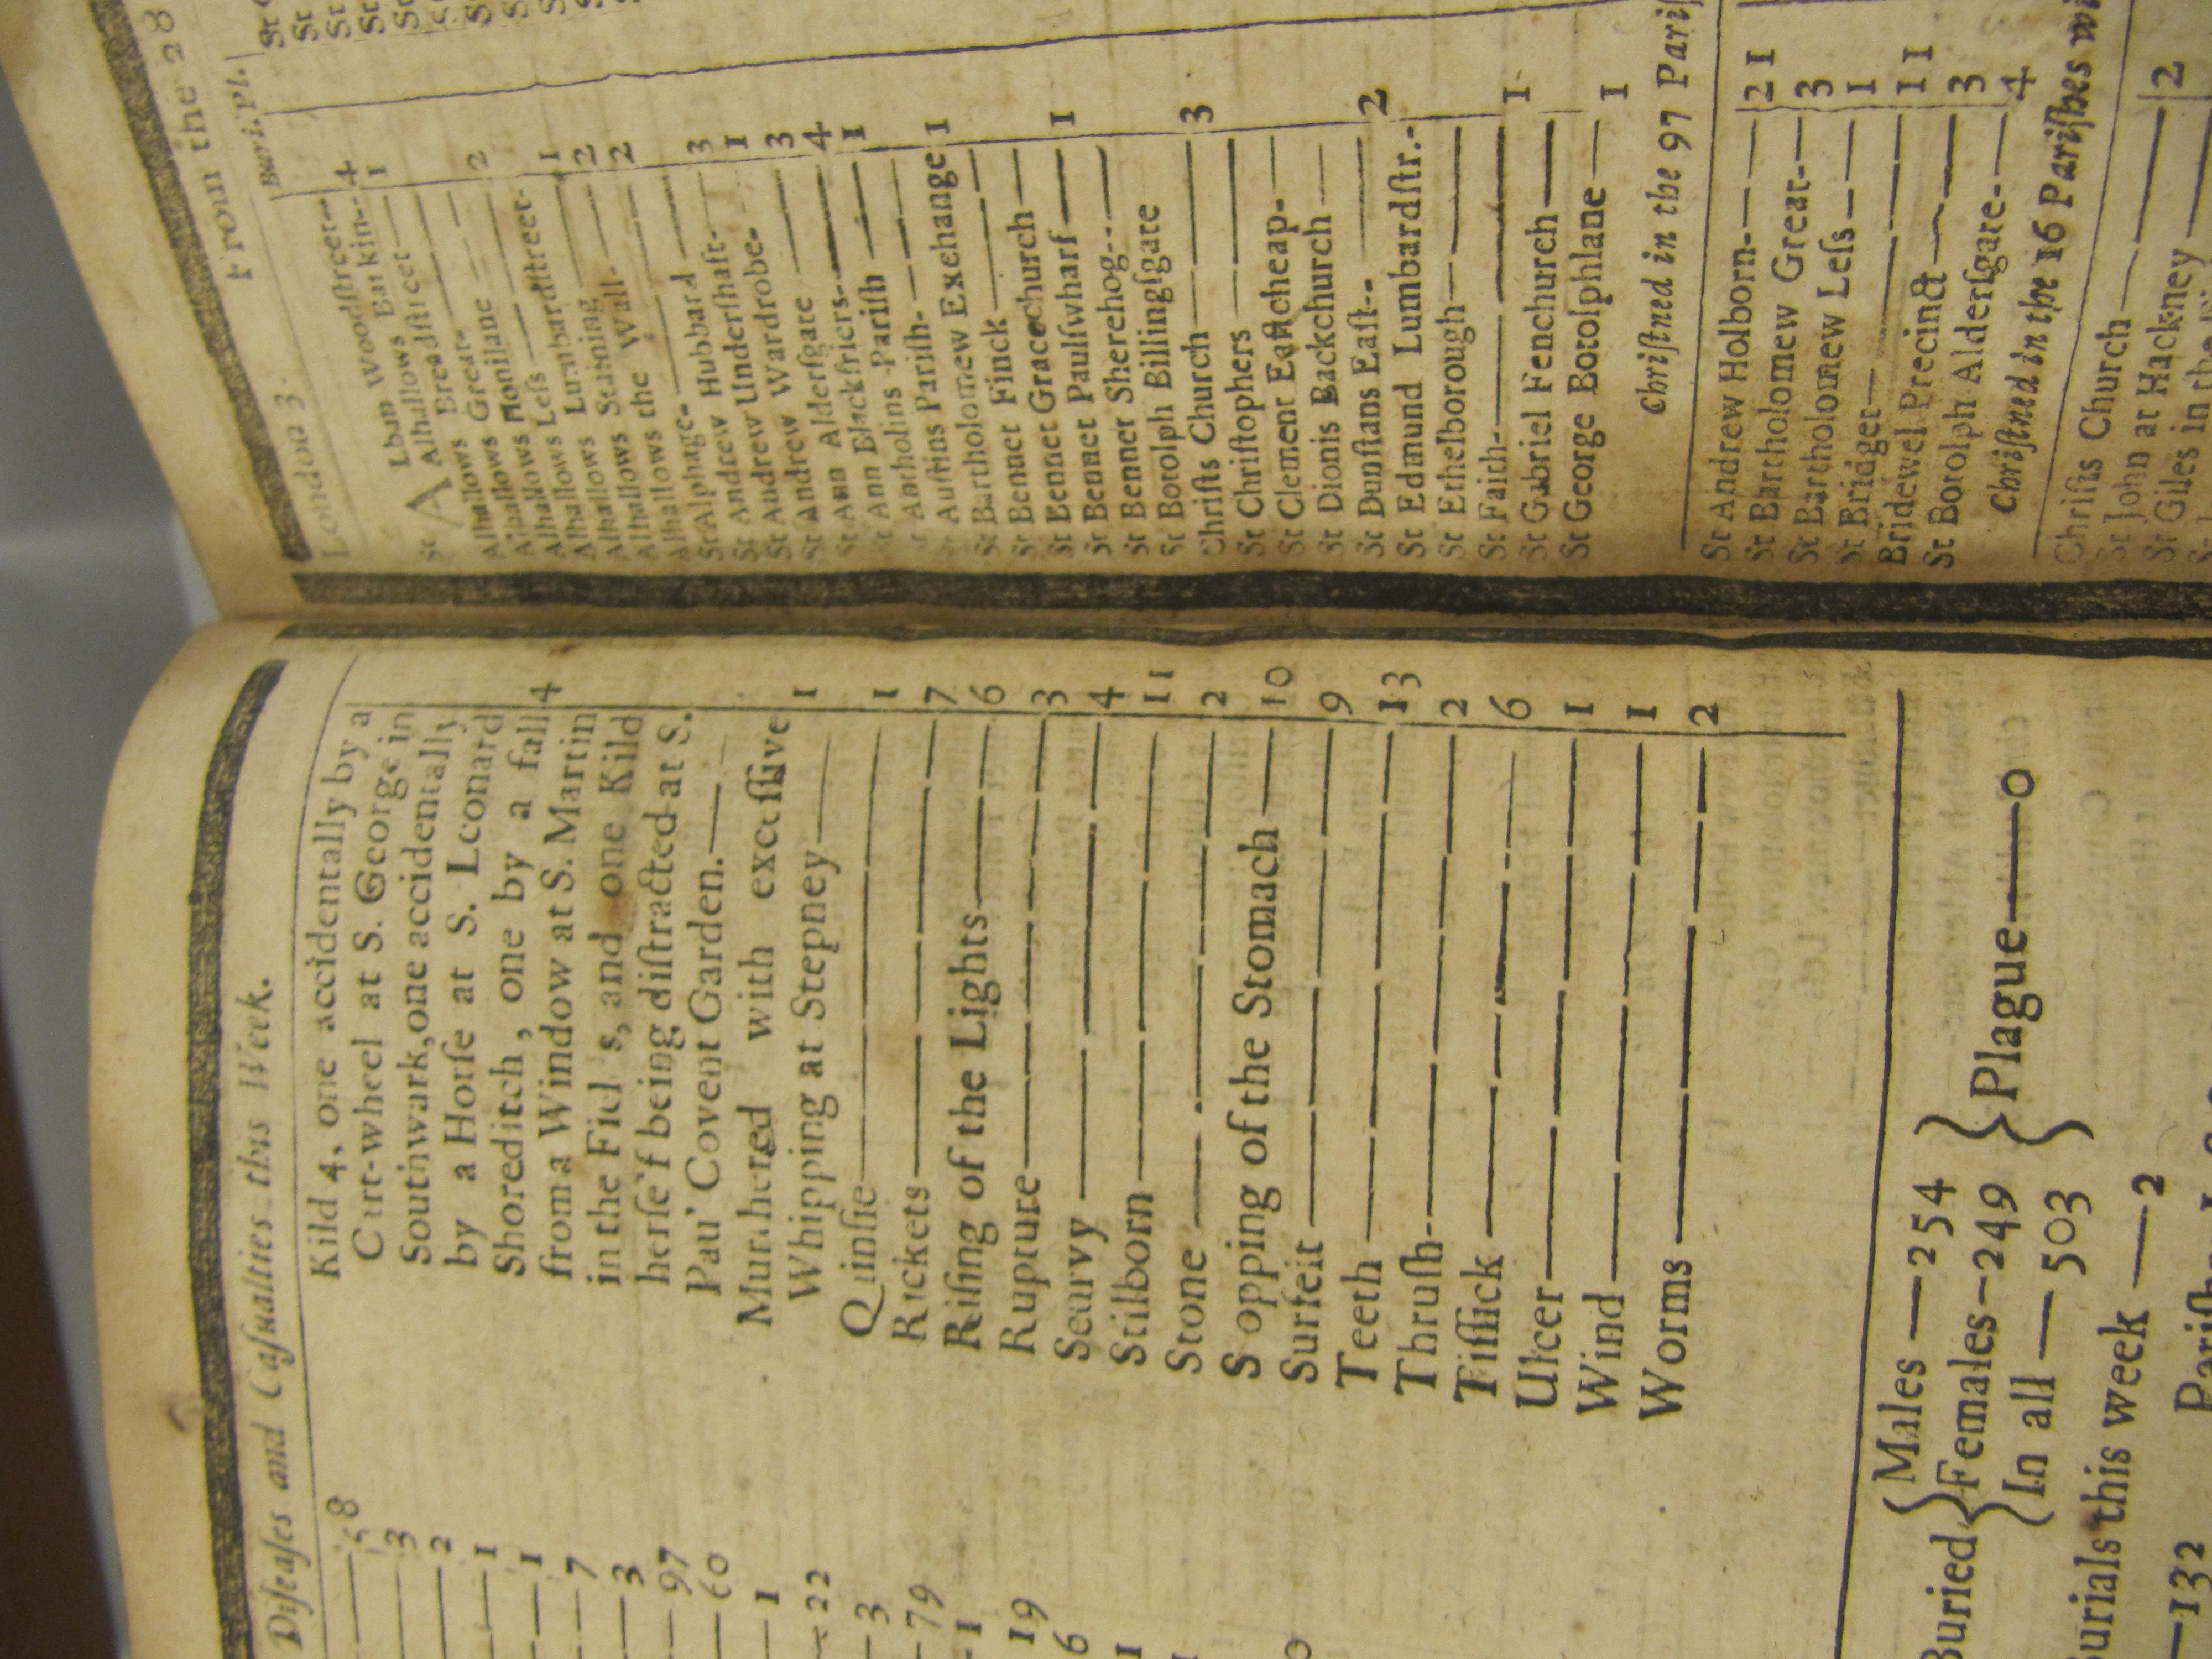 Diſeaſes and Caſualties this Week.
58
3
2
1
1
7
3
97
60
1
22
3
79
1
19
6
1
0
Kild 4, one accidentally by a
Cart-wheel at S. George in
Southwark, one accidentally
by a Horſe at S. Leonard
Shoreditch, one by a fall 4
from a Window at S. Martin
in the Fiel s, and one Kild
herſelf being diſtracted at S.
Paul Covent Garden.
Murthered with exceſſive
Whipping at Stepney 1
Quinſie 1
Rickets 7
Riſing of the Lights 6
Rupture 3
Scurvy 4
Stilborn 11
Stone 2
S opping of the Stomach 10
Surfeit 9
Teeth 13
Thruſh 2
Tiſſick 6
Ulcer 1
Wind 1
Worms 2
Buried { Males — 254
Females — 249
In all — 503 } Plague — 0
Burials this week — 2
— 132
From the 28
London 3.
Buri. Pl.
St Alban Woodſtreet 4
Alhallows Barkin 1
Alhallows Breadſtreet
Alhallows Great 2
Alhallows Honilane
Alhallows Leſs 1
Alhallows Lumbardſtreet 2
Alhallows Staining 2
Alhallows the Wall
St Alphage 3
St Andrew Hubbard 1
St Andrew Underſhaft 3
St Andrew Wardrobe 4
St Ann Alderſgate 1
St Ann Blackfriers
St Antholins Pariſh
St Auſtins Pariſh 1
St Bartholomew Exchange
St Bennet Finck
St Bennet Gracechurch 1
St Bennet Paulſwharf
St Bennet Sherehog
St Botolph Billingſgate
Chriſts Church 3
St Chriſtophers
St Clement Eaſtcheap
St Dionis Backchurch
St Dunſtans Eaſt 2
St Edmund Lumbardſtr.
St Ethelborough
St Faith 1
St Gabriel Fenchurch
St George Botolphlane 1
Chriſtned in the 97 Pariſ
St Andrew Holborn 21
St Bartholomew Great 3
St Bartholomew Leſs 1
St Bridget 11
Bridewel Precinct 3
St Botolph Alderſgate 4
Chriſtned in the 16 Pariſhes wi
Chriſts Church 2
St John at Hackney
St Giles in the